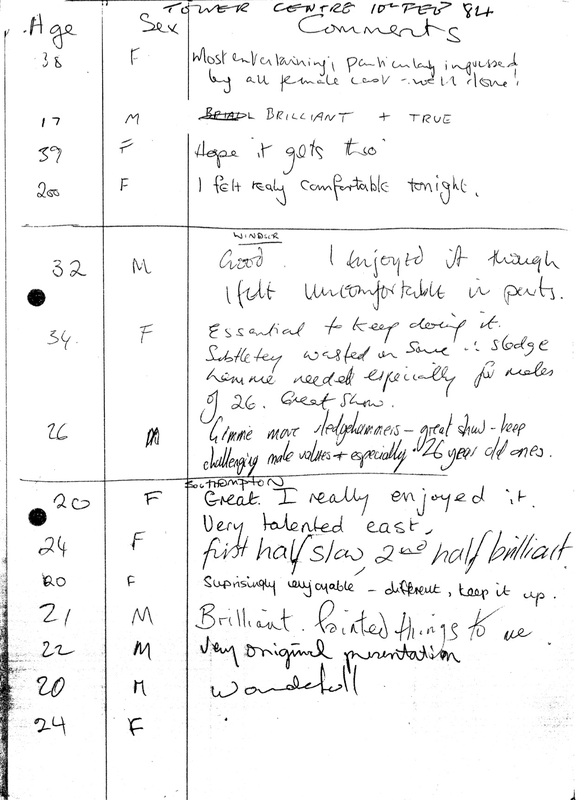 TOWER CENTRE 10th FEB 84
Age Sex Comments
38 F Most entertaining, particularly impressed
by all female cast - well done!
17 M BRILLIANT + TRUE
39 F Hope it gets
200 F I felt realy comfortable tonight.
WINDSOR
32 M Good. I enjoyed it though
I felt uncomfortable in parts.
34. F Essential to keep doing it.
Subtletey wasted on some ∴ sledge
hammer needed especially for males
of 26. Great Show.
26 M Gimme more sledgehammers - great show - keep
challenging male values + especially 26 year old ones.
SOUTHAMPTON
20 F Great. I really enjoyed it.
Very talented cast,
24 F first half slow, 2nd half brilliant.
20 F Suprisingly enjoyable - different, keep it up.
21 M Brilliant. Pointed things to me
22 M Very original presentation
20 M Wonderfull
24 F